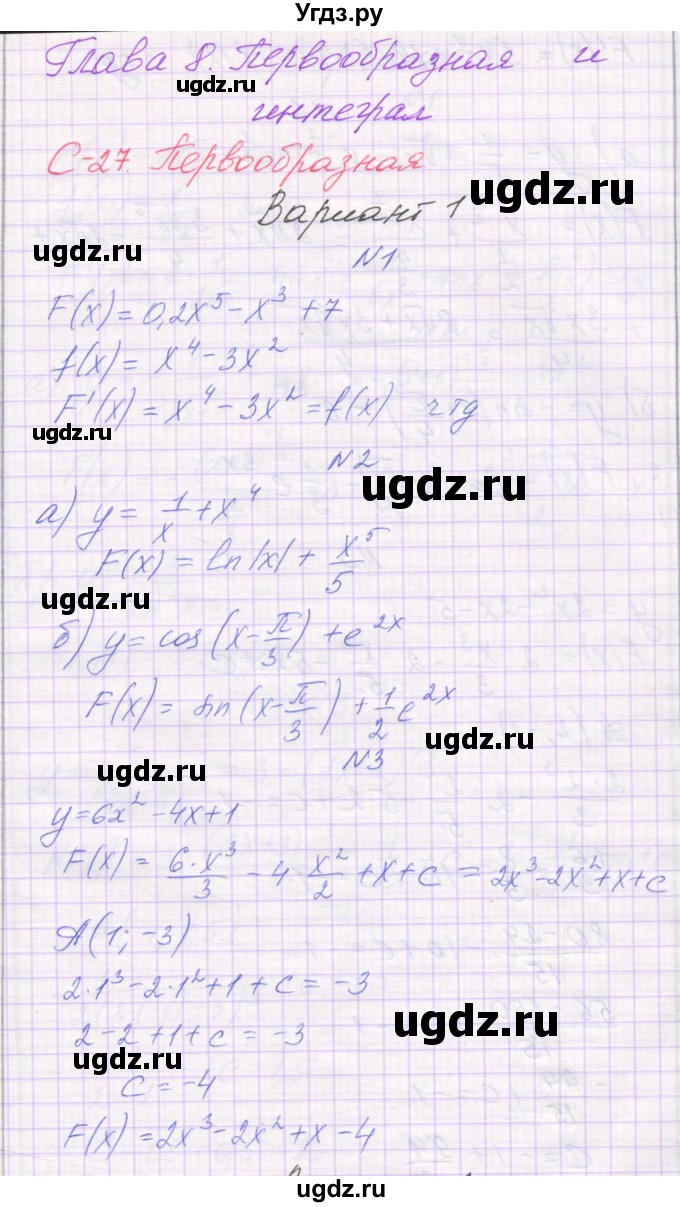 Угдз.ру
Глава 8. Первообразная и
интеграл
ugdz.ru
С-27. Первообразная
ugdz.ru
Вариант 1
ugdz.ru
N1
F(x) = 0,2x⁵ - x³ + 7
f(x) = x⁴ - 3x²
F'(x) = x⁴ - 3x² = f(x) чтд
ugdz.ru
N2
ugdz.ru
а) y = 1/x + x⁴
F(x) = ln|x| + x⁵/5
ugdz.ru
б) y = cos(x - π/3) + e^2x
F(x) = sin(x - π/3) + 1/2 e^2x
ugdz.ru
N3
ugdz.ru
y = 6x² - 4x + 1
F(x) = 6·x³/3 - 4·x²/2 + x + c = 2x³ - 2x² + x + c
A(1; -3)
2·1³ - 2·1² + 1 + c = -3
ugdz.ru
2 - 2 + 1 + c = -3
ugdz.ru
c = -4
F(x) = 2x³ - 2x² + x - 4
ugdz.ru